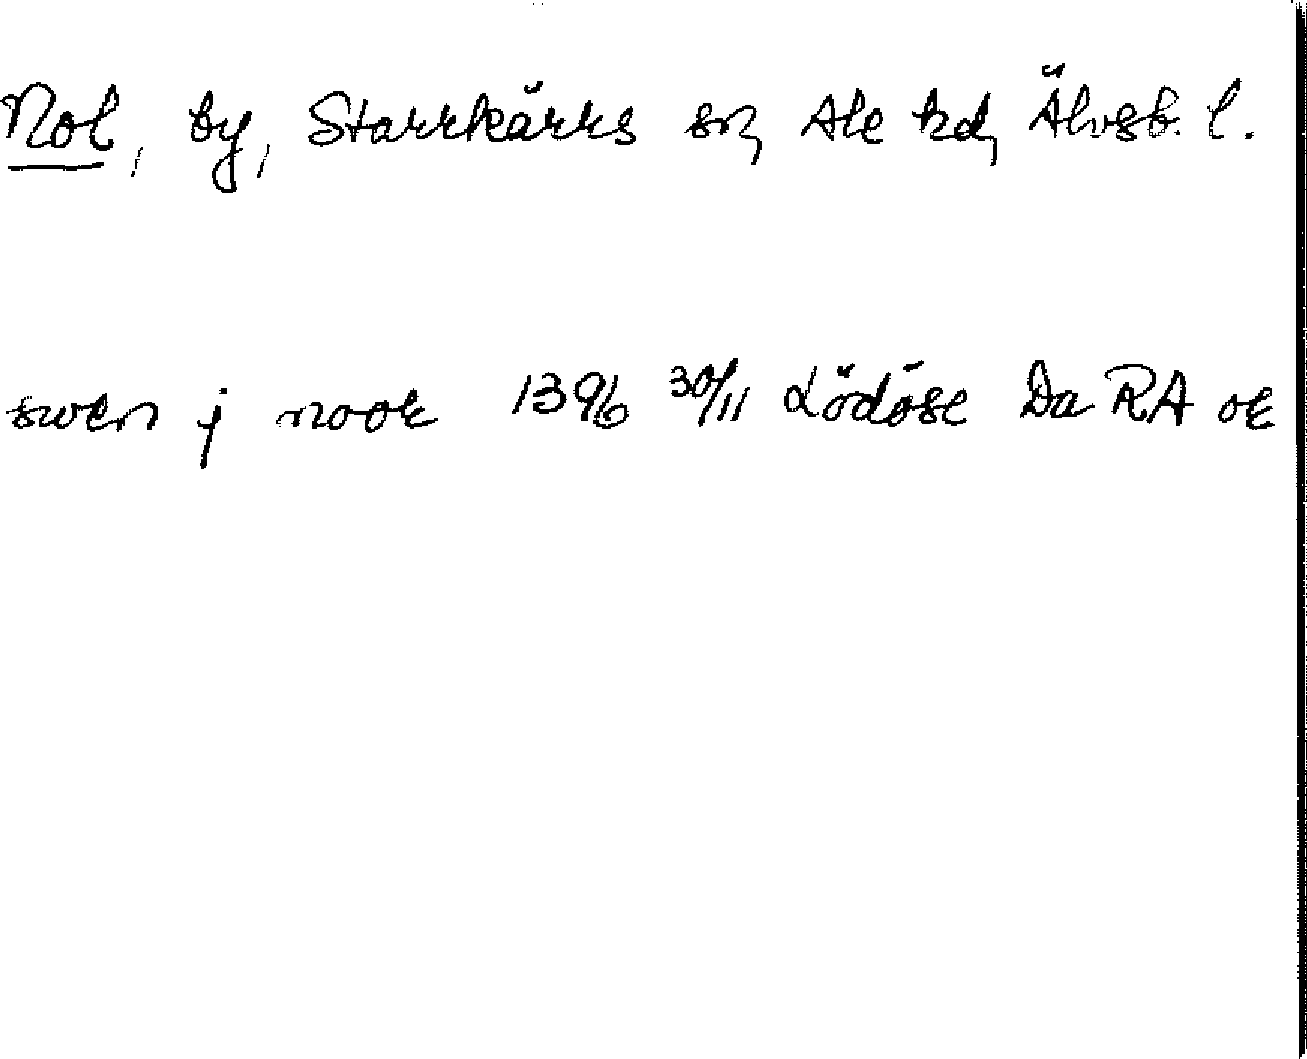 Nol, by, Starrkärrs sn, Ale hd, Älvsb. l.
swen j nook 1396 30/11 Lödöse Da RA ok